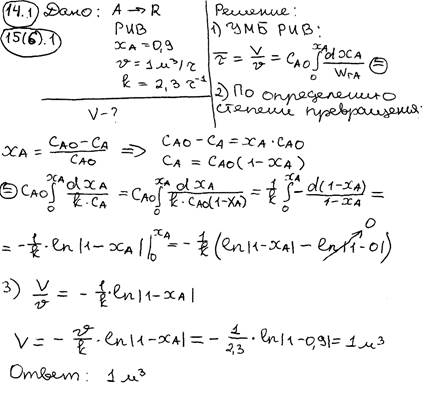 14.1 Дано: A → R
15(б).1 РИВ
x_A = 0,9
v = 1 м³/г
k = 2,3 г⁻¹
V - ?
Решение:
1) УМБ РИВ:
τ̄ = V/v = C_A0 ∫₀^{x_A} dx_A/W_rA ⊜
2) По определению
степени превращения:
x_A = (C_A0 - C_A)/C_A0 ⟹ C_A0 - C_A = x_A · C_A0
C_A = C_A0 (1 - x_A)
⊜ C_A0 ∫₀^{x_A} dx_A/(k · C_A) = C_A0 ∫₀^{x_A} dx_A/(k · C_A0(1 - x_A)) = 1/k ∫₀^{x_A} - d(1 - x_A)/(1 - x_A) =
= - 1/k · ln|1 - x_A| |₀^{x_A} = - 1/k (ln|1 - x_A| - ln|1 - 0|) 0
3) V/v = - 1/k · ln|1 - x_A|
V = - v/k · ln|1 - x_A| = - 1/2,3 · ln|1 - 0,9| = 1 м³
Ответ: 1 м³